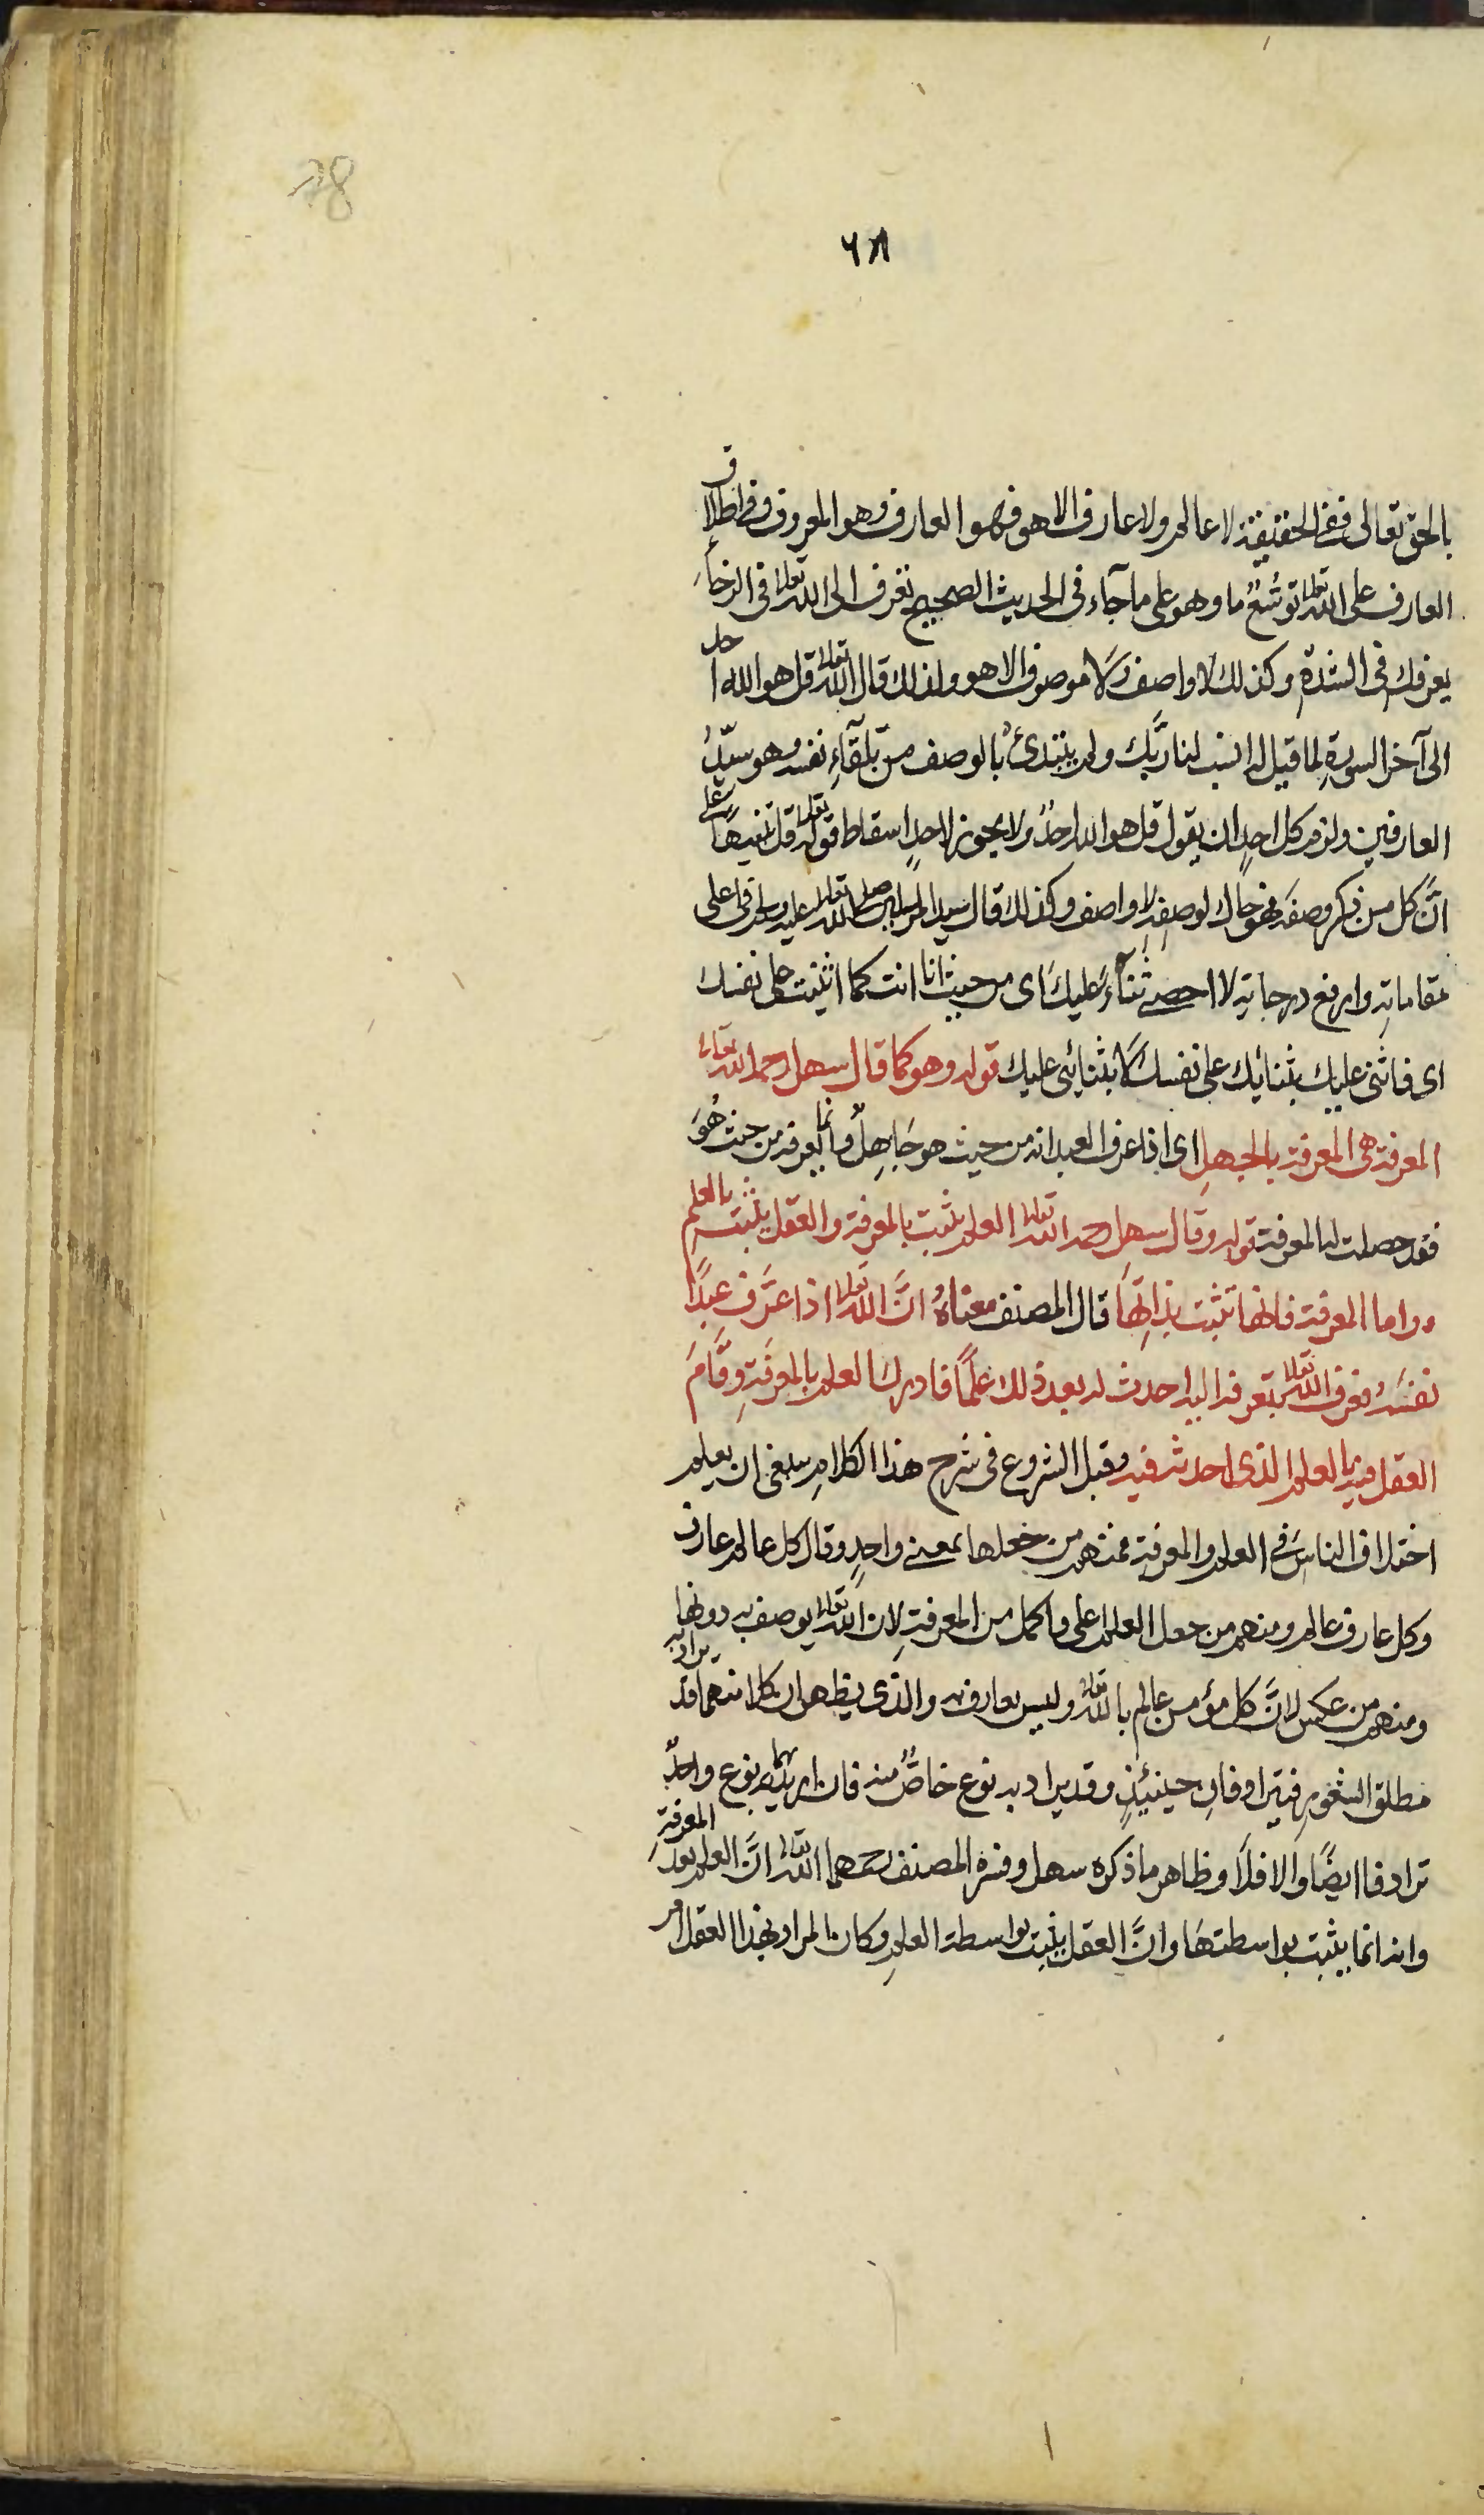 78
٦٨
بالحق تعالى ففى الحقيقة لا عالم ولا عارف الا هو فهو العارف وهو المعروف وفى اطلاق
العارف على الله تعالى توسّع ما وهو على ما جآء فى الحديث الصحيح تعرف الى الله تعالى فى الرخآءِ
يعرفك فى الشدة وكذلك لا واصف ولا موصوف الا هو ولذلك قال الله تعالى قل هو الله احد
الى آخر السورةِ لما قيل له انسب لنا ربّك ولم يبتدئ بالوصف من تلقآءِ نفسه وهو سيّدُ
العارفين ولزم كل احدٍ ان يقول قل هو الله احدٌ ولا يجوز لاحدٍ اسقاط قوله تعالى قل تنبيهًا على
انّ كل من ذكر وصفه فهو حاك لوصفه لا واصف وكذلك قال سيد المرسلين صلى الله تعالى عليه وسلم فى اعلى
مقاماتِه وارفع درجاتِه لا احصى ثنآءً عليك اى من حيث انا انت كما اثنيت على نفسك
اى فاثنى عليك بثنائك على نفسك لا بثنائى عليك قوله وهو كما قال سهل رحمه الله تعالى
المعرفة هى المعرفة بالجهلِ اى اذا عرف العبد انه من حيث هو جاهلٌ وانما يعرفه من حيث هُوَ
فقد حصلت له المعرفة قوله وقال سهل رحمه الله تعالى العلم يثبت بالمعرفة والعقل يثبت بالعلم
واما المعرفة فانها تثبت بذاتِهَا قال المصنف معناهُ انّ الله تعالى اذا عَرَّف عبدًا
نفسَهُ فعرف الله تعالى بتعرفه اليه احدث له بعد ذلك علمًا فادرك العلم بالمعرفةِ وقَامَ
العقل فيه بالعلم الذى احدثه فيه وقبل الشروع فى شرح هذا الكلامِ ينبغى ان يعلم
اختلاف الناس فى العلم والمعرفة فمنهم من جعلها بمعنى واحدٍ وقال كل عالم عارف
وكل عارف عالم ومنهم من جعل العلم اعلى واكمل من المعرفةِ لان الله تعالى يوصف به دونها
ومنهم من عكس لانّ كل مؤمن عالم بالله تعالى وليس بعارف به والذى يظهر ان كلا منهما قد يراد به
مطلق الشعور فيترادفان حينئذٍ وقد يراد به نوع خاصٌّ منه فان اريد بهما نوع واحدٌ
ترادفا ايضًا والا فلا وظاهر ما ذكره سهل وفسره المصنف رحمهما الله تعالى انّ العلم بعد المعرفةِ
وانه انما يثبت بواسطتهَا وانّ العقل يثبت بواسطة العلمِ وكان المراد بهذا العقل امر